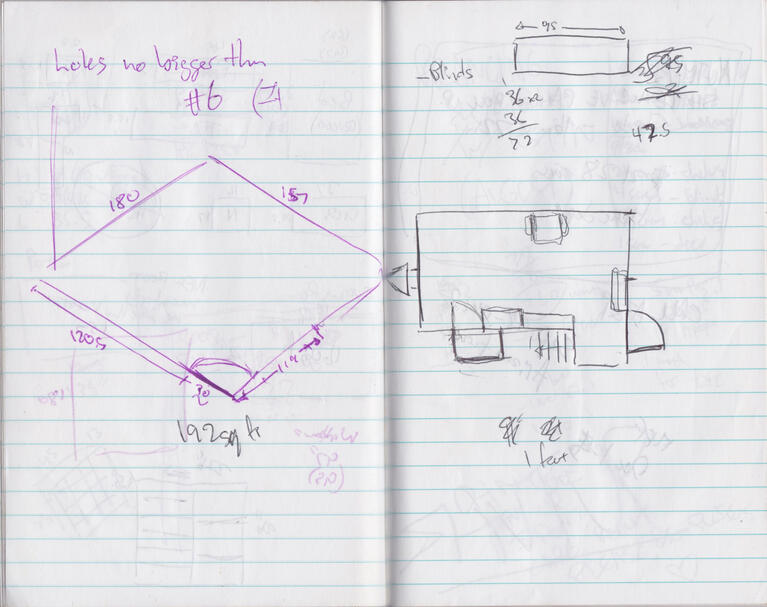 holes no bigger than
#6
180
157
1205
30
119
192 sq ft
95
- Blinds
36 x 2
36
72
47.5
1 foot